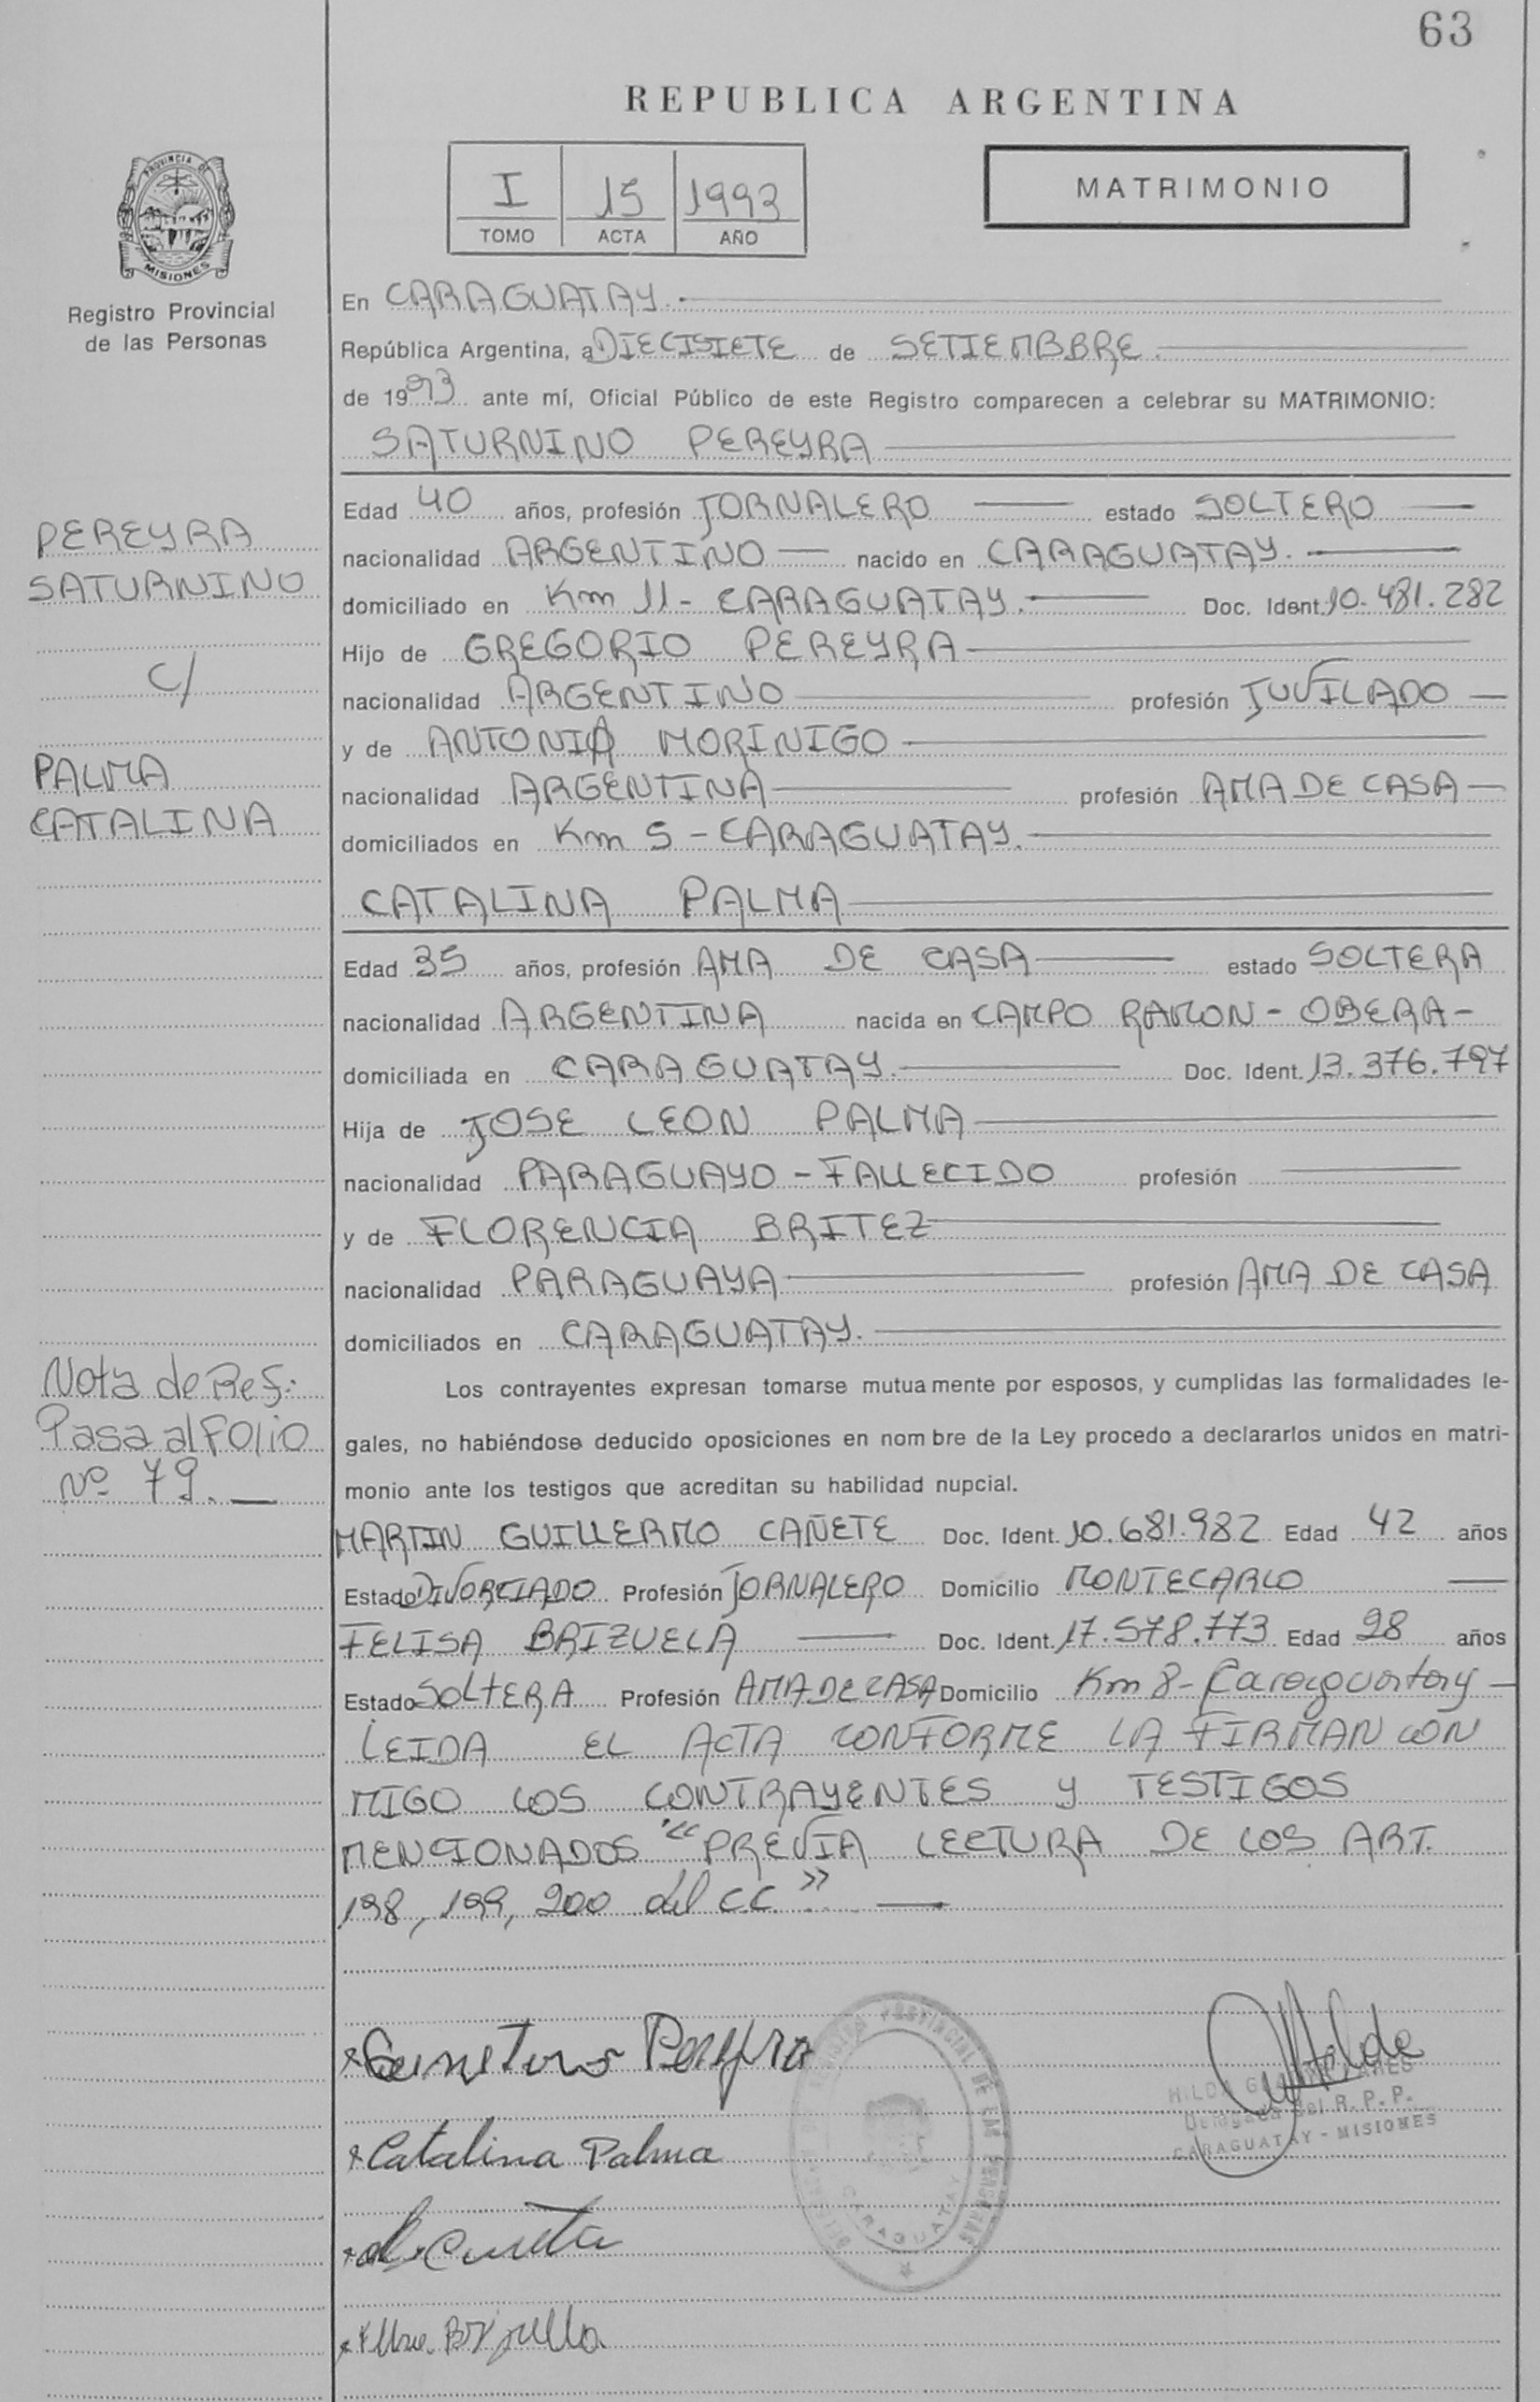 63
REPUBLICA ARGENTINA
I 15 1993
TOMO ACTA AÑO
MATRIMONIO
PROVINCIA DE
MISIONES
Registro Provincial
de las Personas
En CARAGUATAY.
República Argentina, a DIECISIETE de SETIEMBBRE.
de 1993 ante mí, Oficial Público de este Registro comparecen a celebrar su MATRIMONIO:
SATURNINO PEREYRA
PEREYRA
SATURNINO
C/
PALMA
CATALINA
Edad 40 años, profesión JORNALERO estado SOLTERO
nacionalidad ARGENTINO nacido en CARAGUATAY.
domiciliado en Km 11 - CARAGUATAY. Doc. Ident. 10.481.282
Hijo de GREGORIO PEREYRA
nacionalidad ARGENTINO profesión JUVILADO
y de ANTONIA MORINIGO
nacionalidad ARGENTINA profesión AMA DE CASA
domiciliados en Km 5 - CARAGUATAY.
CATALINA PALMA
Edad 35 años, profesión AMA DE CASA estado SOLTERA
nacionalidad ARGENTINA nacida en CAMPO RAMON - OBERA -
domiciliada en CARAGUATAY. Doc. Ident. 13.376.797
Hija de JOSE LEON PALMA
nacionalidad PARAGUAYO - FALLECIDO profesión
y de FLORENCIA BRITEZ
nacionalidad PARAGUAYA profesión AMA DE CASA
domiciliados en CARAGUATAY.
Nota de Ref.:
Pasa al Folio
Nº 79.
Los contrayentes expresan tomarse mutuamente por esposos, y cumplidas las formalidades le-
gales, no habiéndose deducido oposiciones en nombre de la Ley procedo a declararlos unidos en matri-
monio ante los testigos que acreditan su habilidad nupcial.
MARTIN GUILLERMO CAÑETE Doc. Ident. 10.681.982 Edad 42 años
Estado DIVORCIADO Profesión JORNALERO Domicilio MONTECARLO
FELISA BRIZUELA Doc. Ident. 17.578.773 Edad 28 años
Estado SOLTERA Profesión AMA DE CASA Domicilio Km 8 - Caraguatay
LEIDA EL ACTA CONFORME LA FIRMAN CON
MIGO LOS CONTRAYENTES Y TESTIGOS
MENCIONADOS "PREVIA LECTURA DE LOS ART.
198, 199, 200 del CC."
Pereyra
Catalina Palma
Hilda
HILDA
Delegada del R. P. P.
CARAGUATAY - MISIONES
PROVINCIAL DE LAS PERSONAS
CARAGUATAY